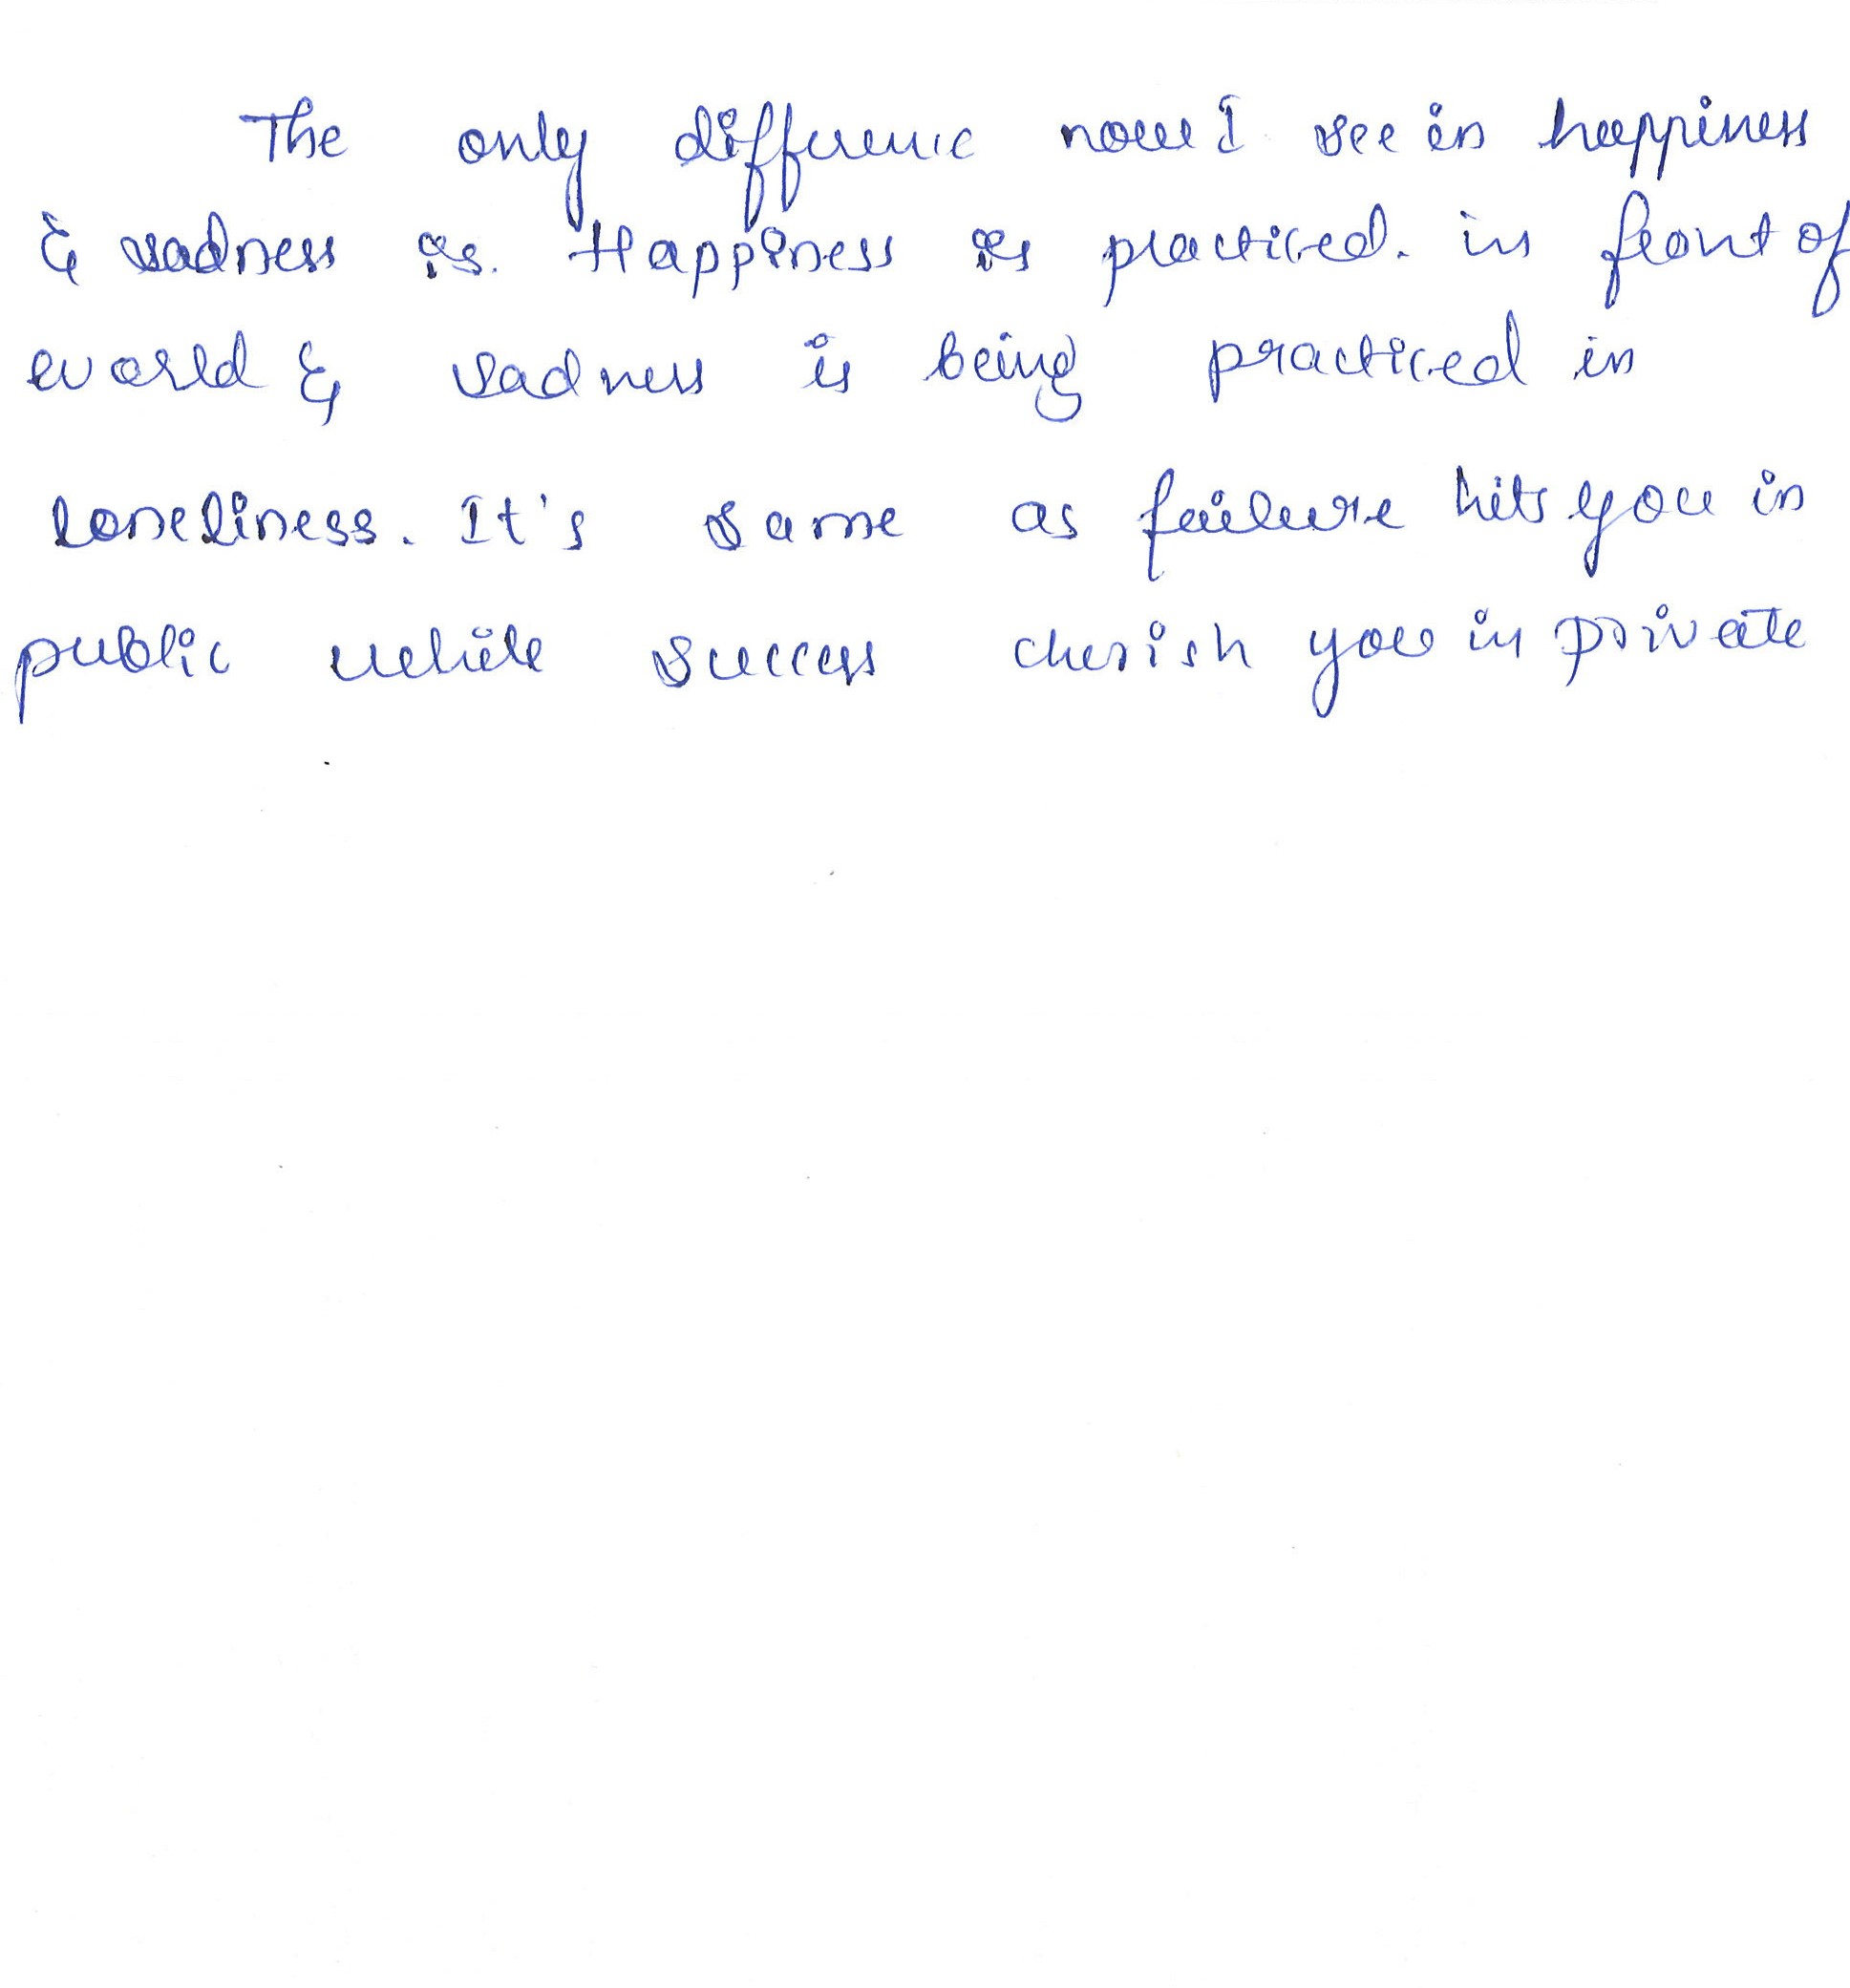 The only difference now I see in happiness
& sadness is. Happiness is practiced. in front of
world & sadness is being practiced in
loneliness. It's same as failure hits you in
public while success cherish you in private